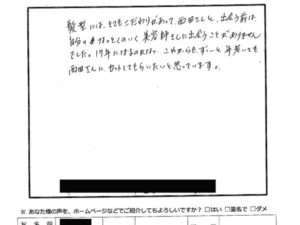 髪型には、とてもこだわりがあって、西田さんと、出会う前は、
自分の、なっとくのいく美容師さんに出会うことがありません
でした。17年になるのかな。これからも、ずーと年老いても
西田さんに、カットしてもらいたいと思っています。
※ あなた様の声を、ホームページなどでご紹介してもよろしいですか？ □はい □匿名で □ダメ